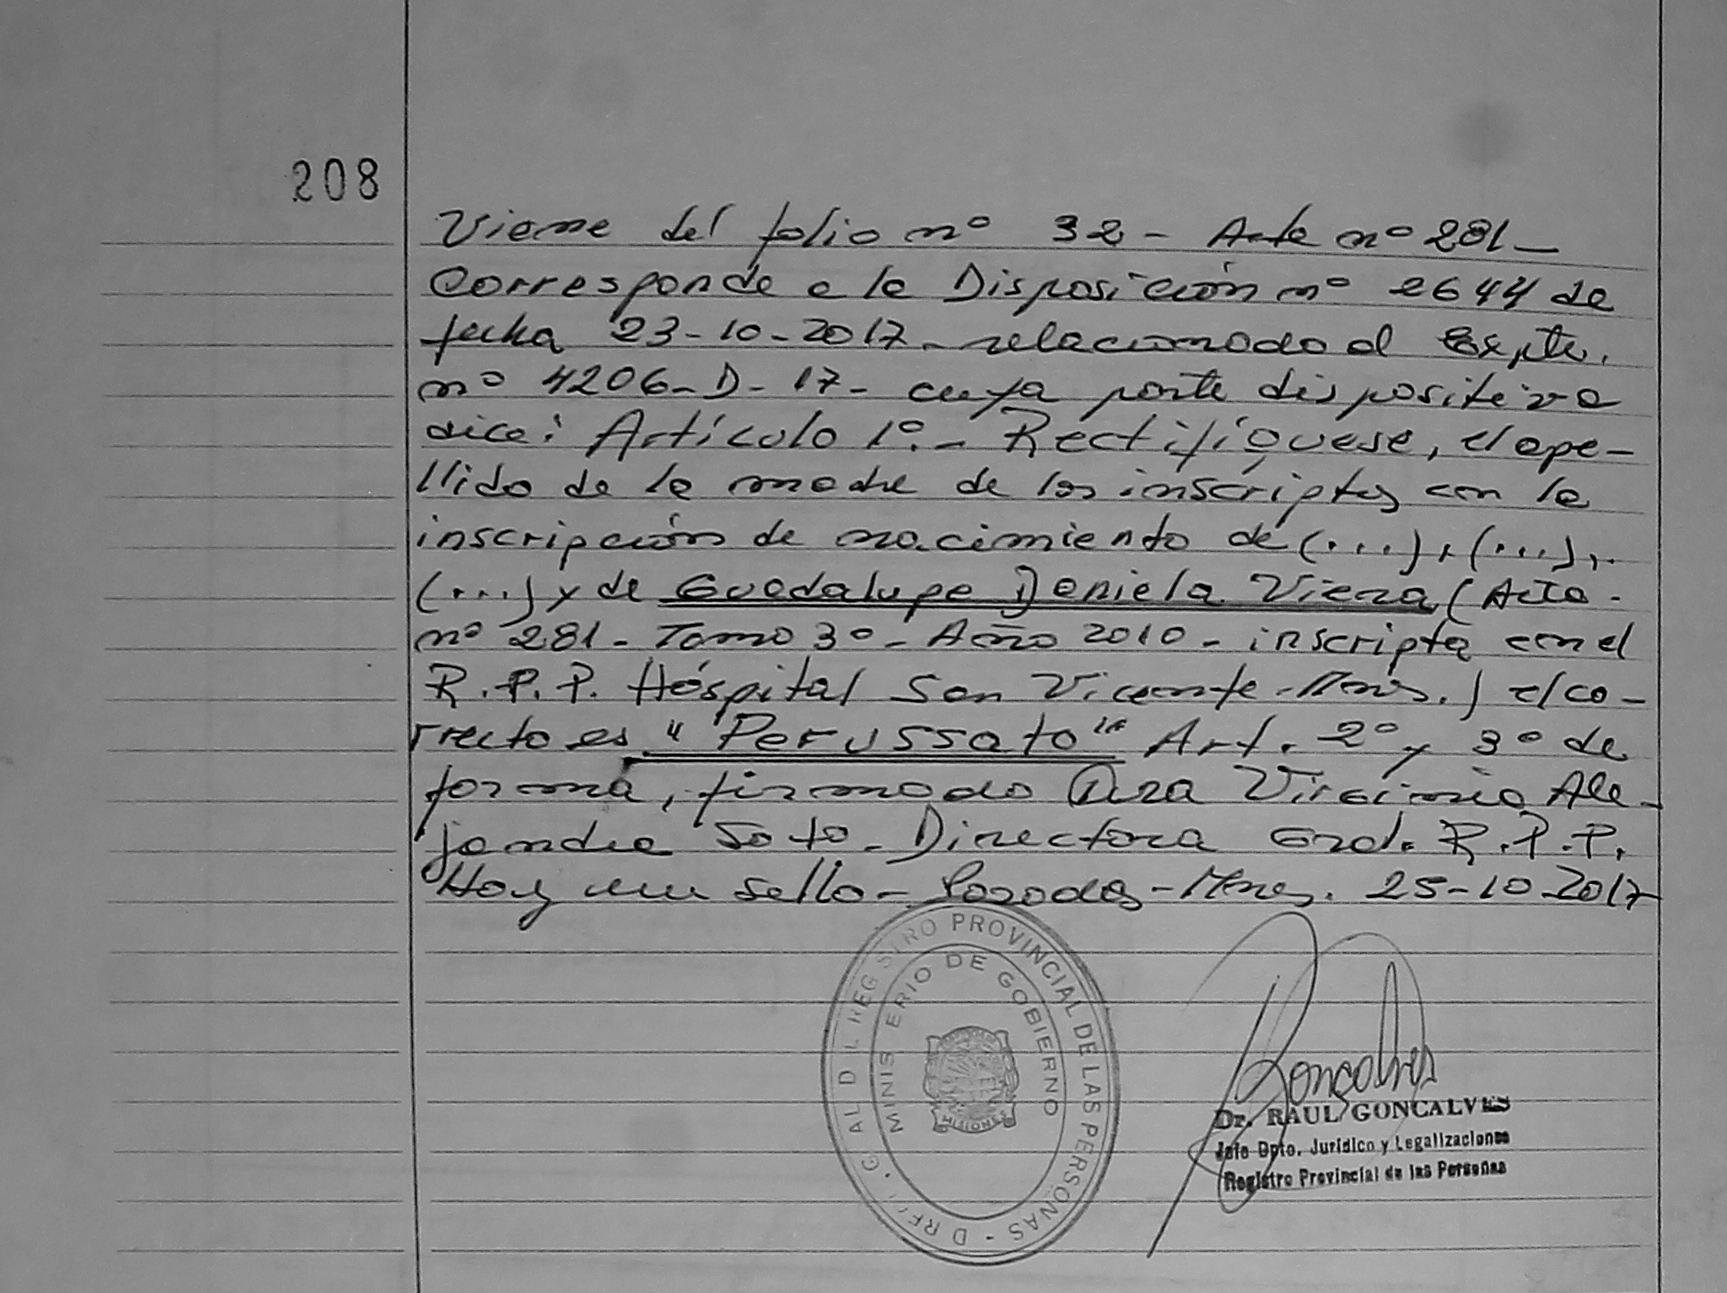 208
Viene del folio nº 32 - Acta nº 281 -
Corresponde a la Disposición nº 2644 de
fecha 23-10-2017 - relacionado al Expte.
nº 4206-D-17- cuya parte dispositiva
dice: Artículo 1º.- Rectifíquese, el ape-
llido de la madre de los inscriptos en la
inscripción de nacimiento de (...), (...),
(...) y de Guadalupe Daniela Viera (Acta
nº 281 - Tomo 3º - Año 2010 - inscripta en el
R.P.P. Hospital San Vicente - Mnes.) el co-
rrecto es "Perussato" Art. 2º y 3º de
forma, firmado Dra Virginia Ale-
jandra Soto - Directora Gral. R.P.P.
Hay un sello - Posadas - Mnes. 25-10-2017
REGISTRO PROVINCIAL DE LAS PERSONAS
MINISTERIO DE GOBIERNO
MISIONES
Goncalves
Dr. RAUL GONCALVES
Jefe Dpto. Jurídico y Legalizaciones
Registro Provincial de las Personas